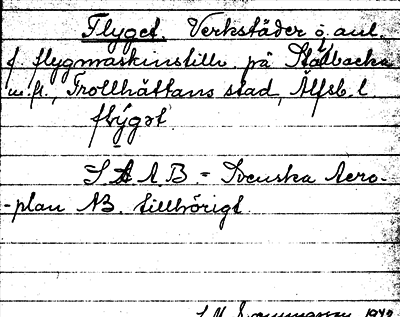 Flyget. Verkstäder o. anl.
f. flygmaskinstillv. på Stallbacka
m.fl., Trollhättans stad, Älfsb. l.
flýgət
S A A B = Svenska Aero-
-plan AB. tillhörigt
1940